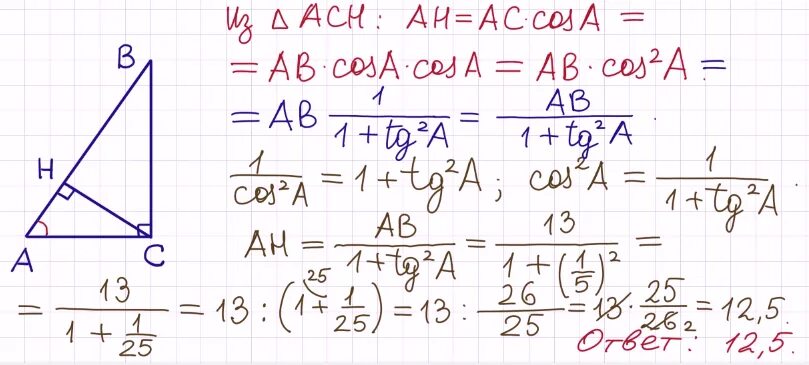 Из △ ACH: AH = AC·cosA =
= AB·cosA·cosA = AB·cos²A =
= AB 1/(1+tg²A) = AB/(1+tg²A).
1/cos²A = 1+tg²A; cos²A = 1/(1+tg²A).
AH = AB/(1+tg²A) = 13/(1+(1/5)²) =
= 13/(1+1/25) = 13 : (1 25+ 1/25) = 13 : 26/25 = 13·25/26 2 = 12,5.
Ответ: 12,5.
B
H
A
C